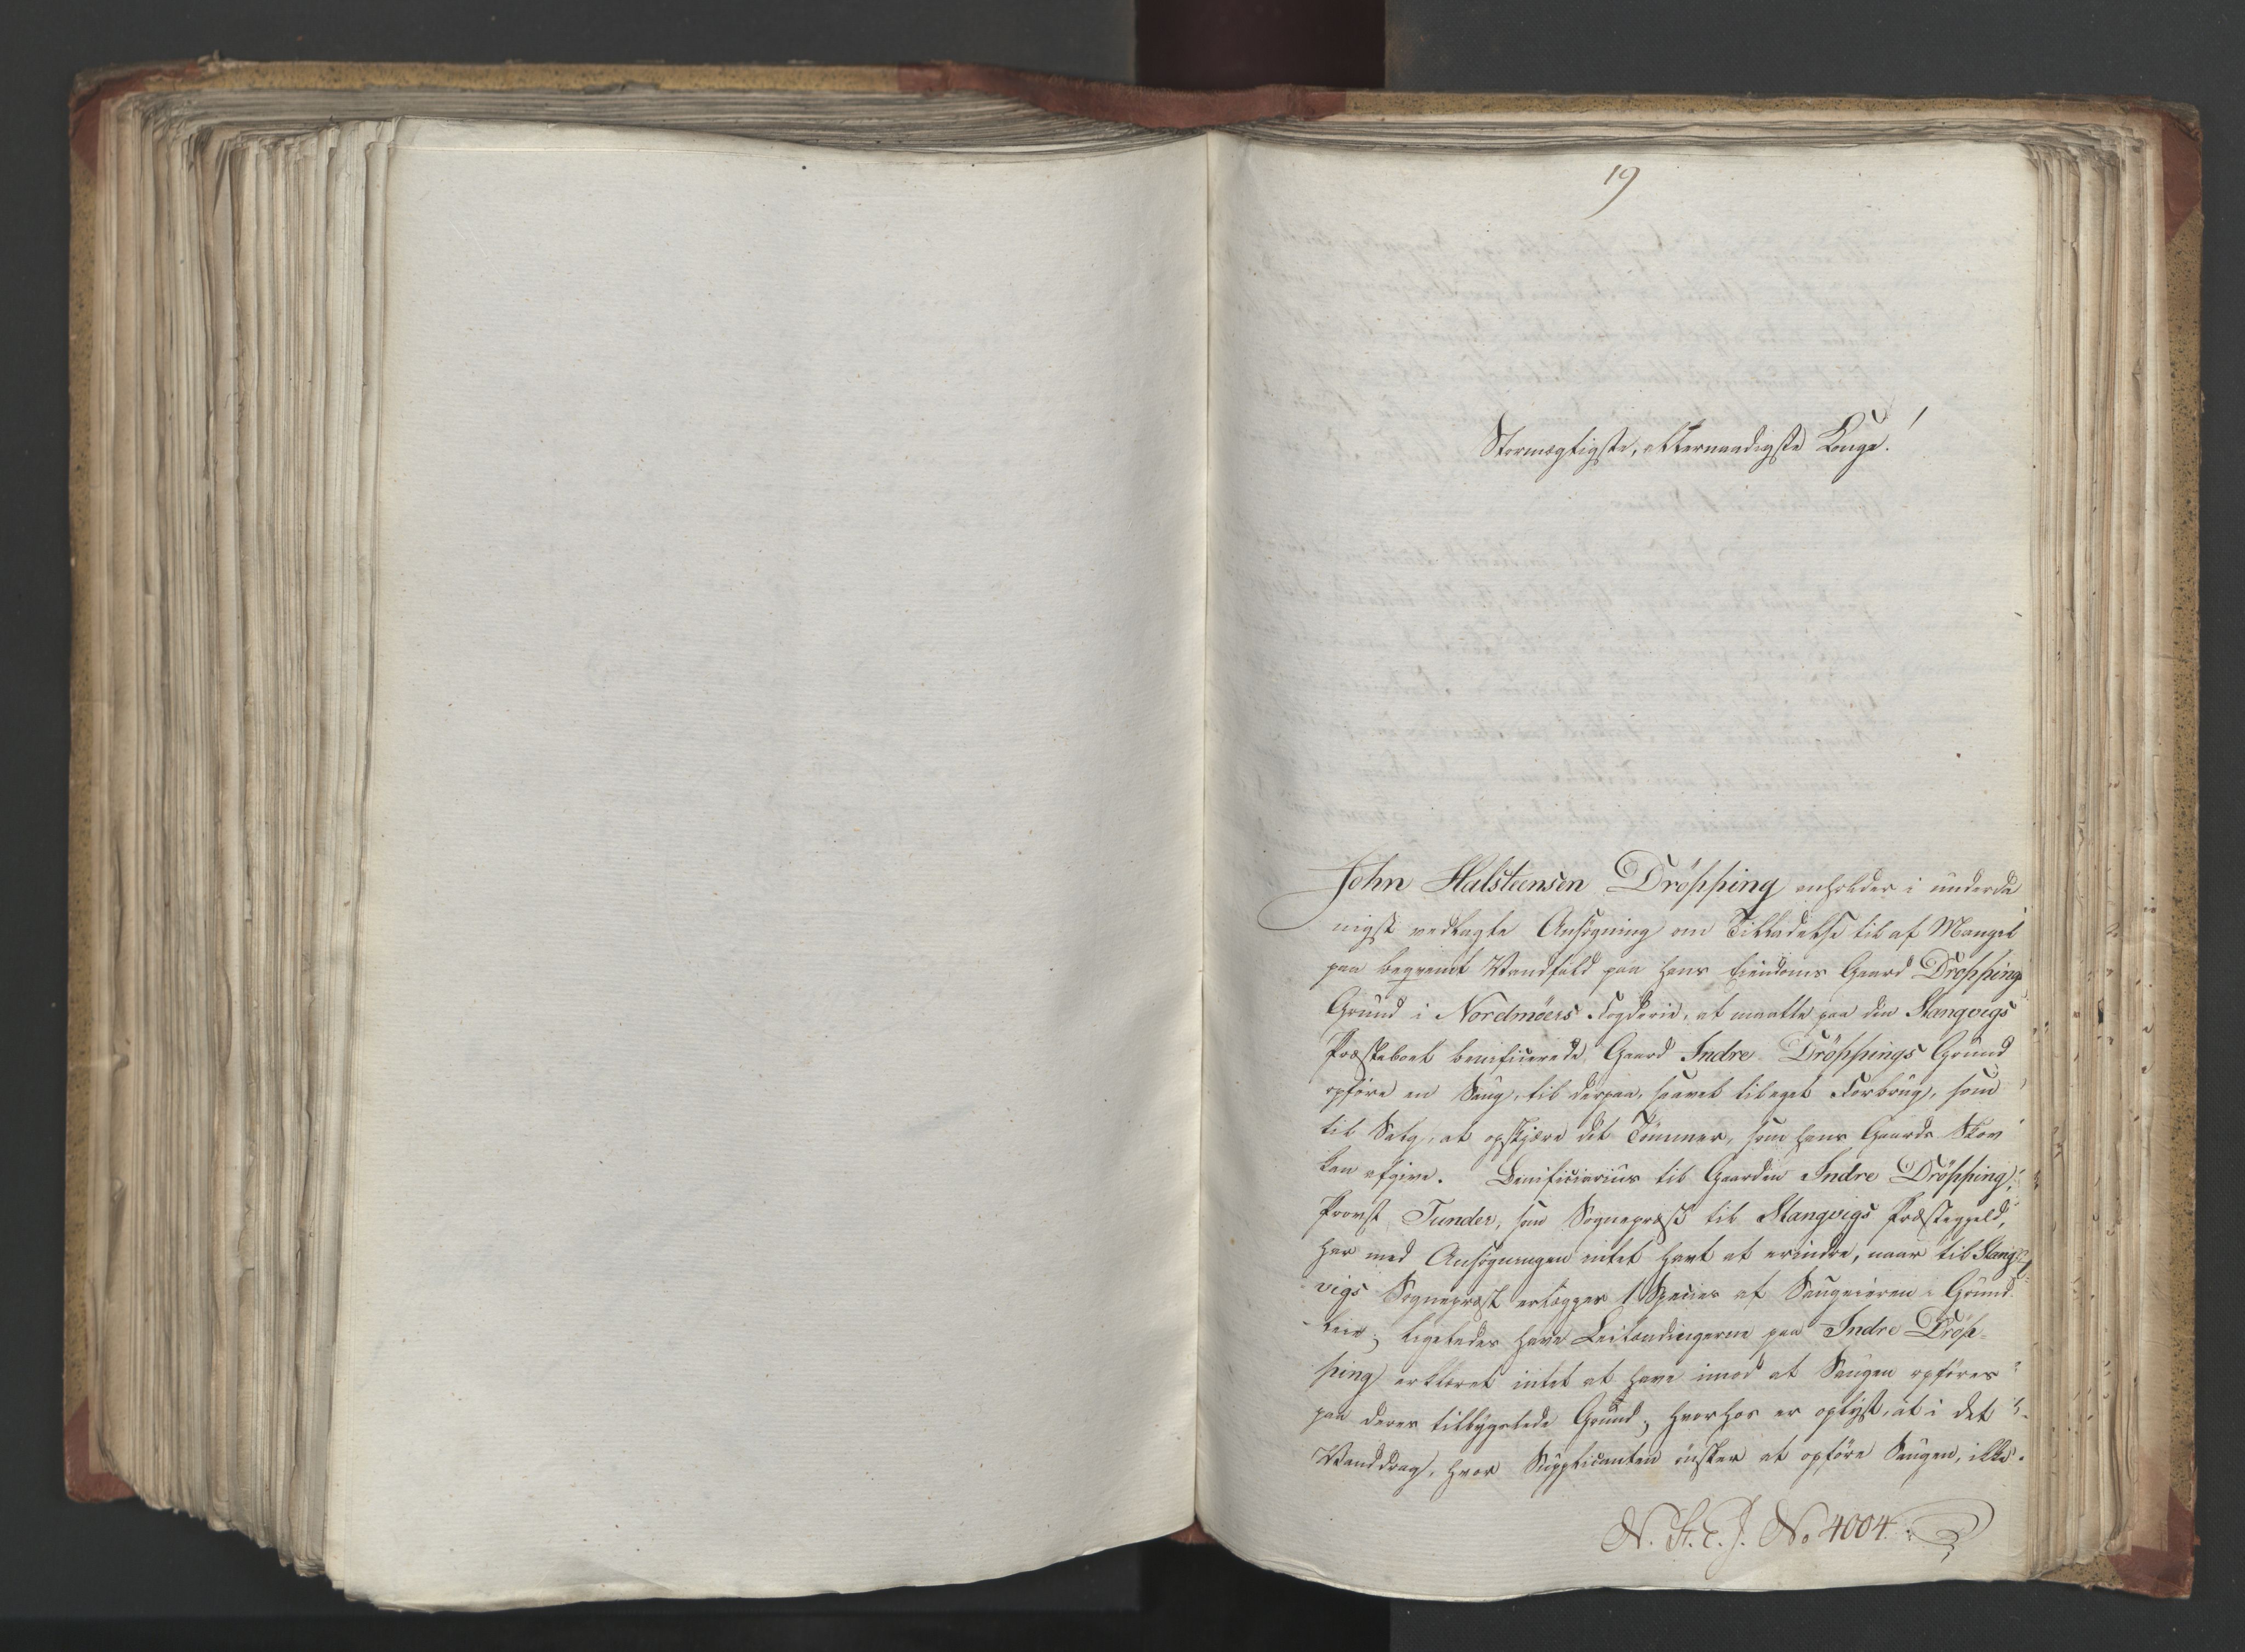 19
Stormægtigste, allernaadigste Konge!
John Halsteensen Dröpping anholder i underda
nigst vedlagte Ansögning om Tilladelse til af Mangel
paa beqvemt Vandfald paa hans Eiendoms Gaard Dröppings
Grund i Nordmöers Fogderie, at maatte paa den Stangvigs
Præstebord beneficerede Gaard Indre Dröppings Grund
opföre en Saug, til derpaa, saavel til eget Forbrug, som
til Salg, at opskjære det Tömmer, som hans Gaards Skov
kan afgive. Beneficiarius til Gaarden Indre Dröpping,
Provst Tunder, som Sognepræst til Stangvigs Præstegjeld,
har med Ansögningen intet havt at erindre, naar til Stang-
vigs Sognepræst erlægges 1 Species af Saugeieren i Grund-
leie; ligeledes have Leilændingerne paa Indre Dröp-
ping erklæret intet at have imod at Saugen opföres
paa deres tilbygslede Grund; hvorhos er oplyst, at i det
Vanddrag, hvor Supplicanten önsker at opföre Saugen, ikke
N. St. C. J. No 4004.